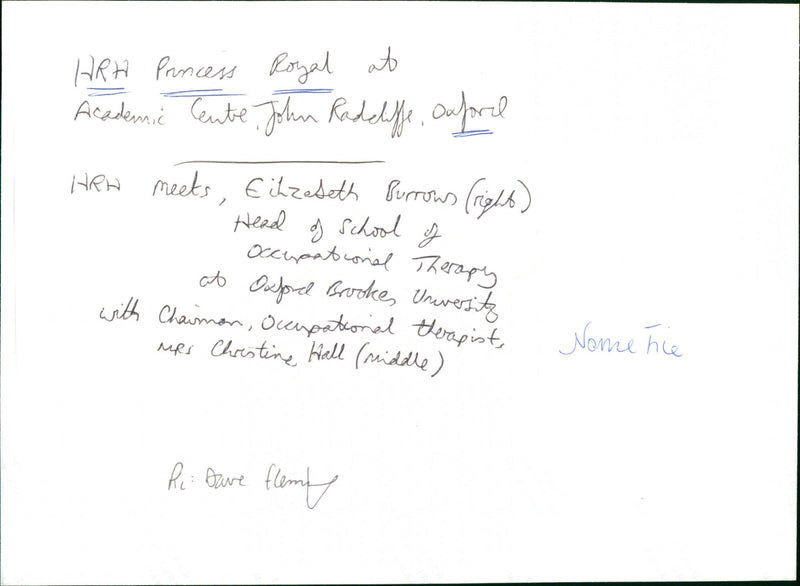 HRH Princess Royal at
Academic Centre, John Radcliffe, Oxford
HRH meets, Elizabeth Burrows (right)
Head of School of
Occupational Therapy
at Oxford Brookes University
with Chairman, Occupational therapists,
Mrs Christine Hall (middle)
Name File
Pic: Dave Fleming